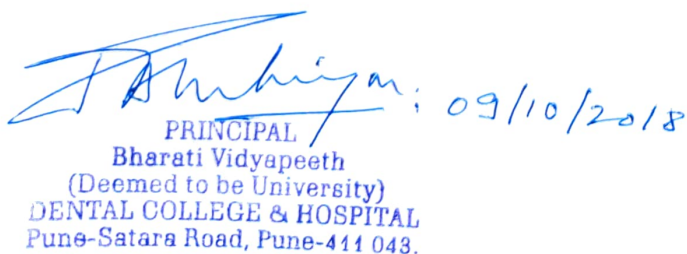 09/10/2018
PRINCIPAL
Bharati Vidyapeeth
(Deemed to be University)
DENTAL COLLEGE & HOSPITAL
Pune-Satara Road, Pune-411 043.